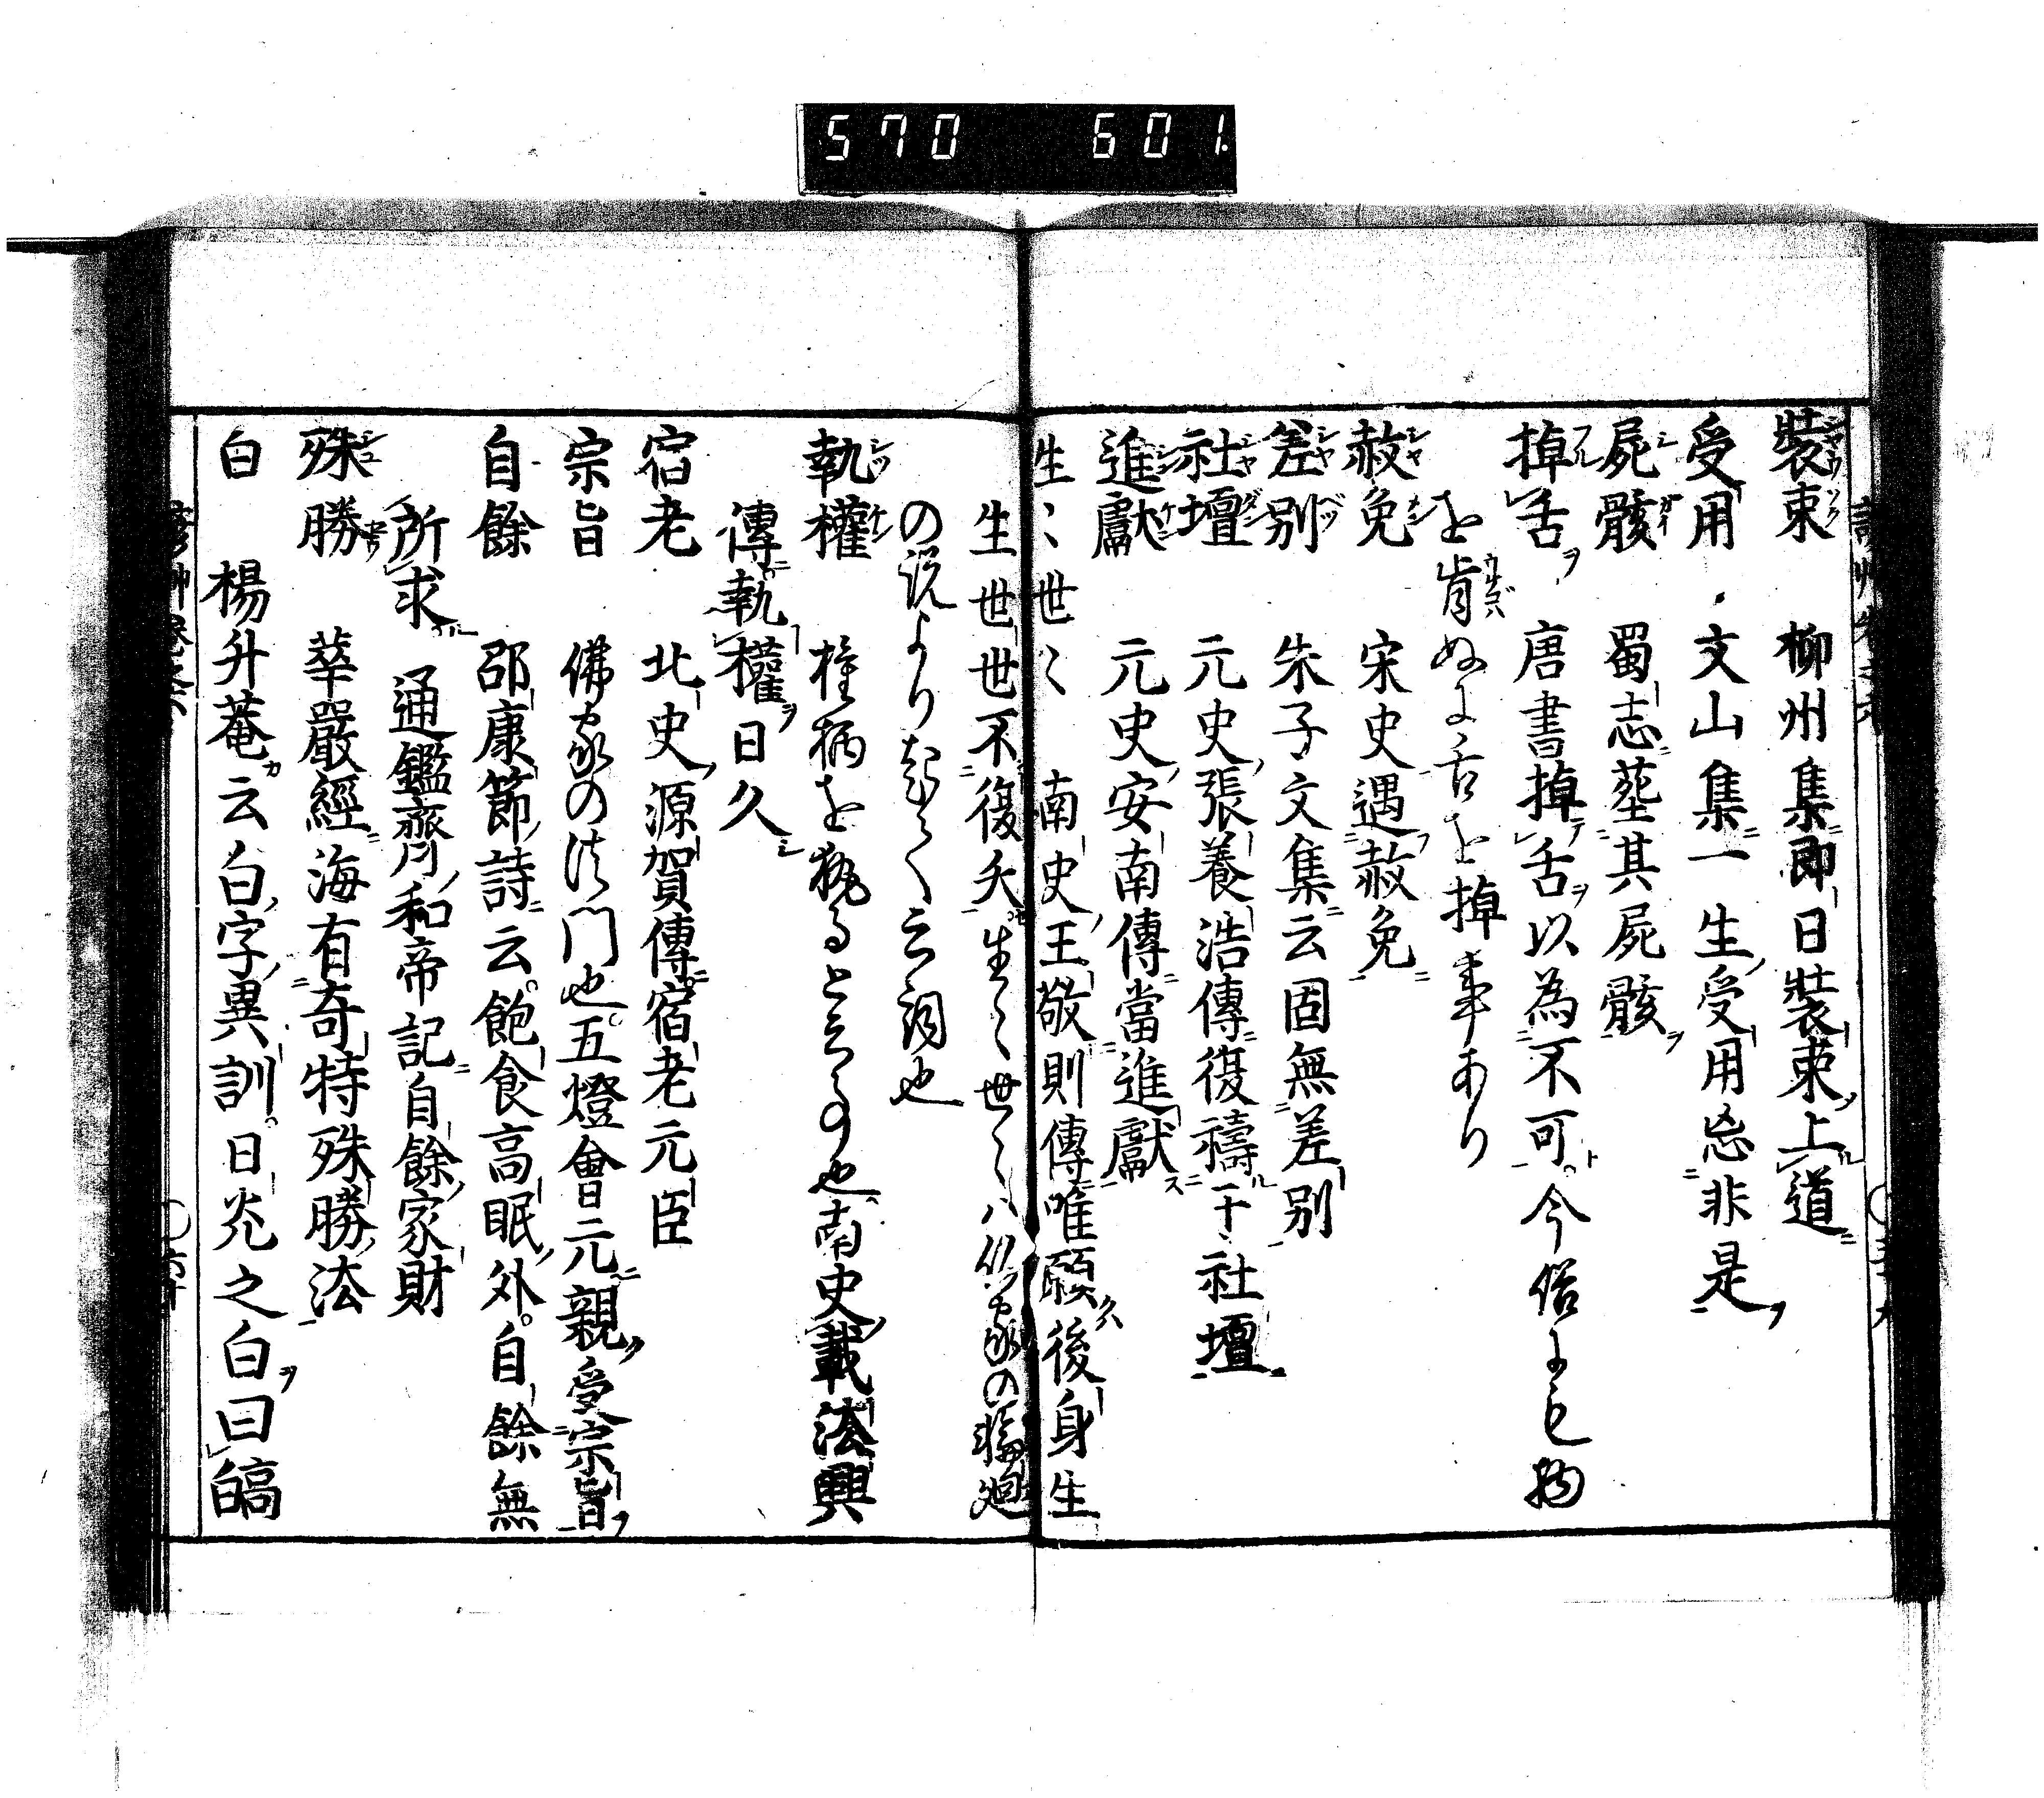 570 601.
裝束 柳州集即日裝束上道
受用 文山集一生受用忘非是
屍骸 蜀志葬其屍骸
掉舌 唐書掉舌以為不可今俗にも物
を肯ぬに舌を掉事あり
赦免 宋史遇赦免
差別 朱子文集云固無差別
社壇 元史張養浩傳復禱于社壇
進獻 元史安南傳當進獻
生〻世〻 南史王敬則傳唯願後身生
生世世不復夭生〻世〻ハ仏家の輪廻
の説より起りて云詞也
執權 権柄を執ると云の也南史載法興
傳執權日久
宿老 北史源賀傳宿老元臣
宗旨 佛家の法門也五燈會元親受宗旨
自餘 邵康節詩云飽食高眠外自餘無
所求 通鑑齊月和帝記自餘家財
殊勝 華嚴經海有奇特殊勝法
白 楊升菴云白字異訓日光之白曰皜